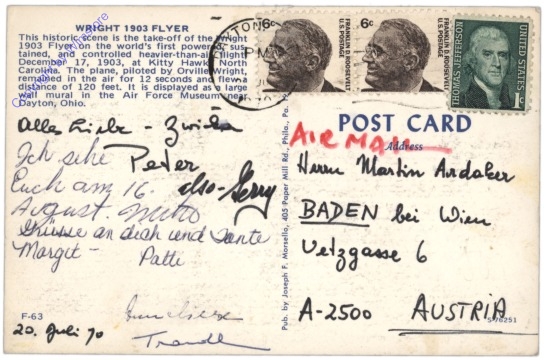 WRIGHT 1903 FLYER
This historic scene is the take-off of the Wright
1903 Flyer on the world's first powered, sus-
tained, and controlled heavier-than-air flight
December 17, 1903, at Kitty Hawk, North
Carolina. The plane, piloted by Orville Wright,
remained in the air for 12 seconds and flew a
distance of 120 feet. It is displayed as a large
wall mural in the Air Force Museum near
Dayton, Ohio.
6c
FRANKLIN D. ROOSEVELT
U.S. POSTAGE
6c
FRANKLIN D. ROOSEVELT
U.S. POSTAGE
THOMAS JEFFERSON
UNITED STATES
1c
PM
POST CARD
Address
AIR MAIL
Alles Liebe -
Ich sehe Peter
Euch am 16. also - Gerry
August.
Grüsse an dich und Tante
Margit - Patti
Traudl
F-63
20. Juli 70
Pub. by Joseph F. Morsello, 405 Paper Mill Rd., Phila., Pa.
Herrn Martin Andaker
BADEN bei Wien
Uetzgasse 6
A-2500 AUSTRIA
S-76251